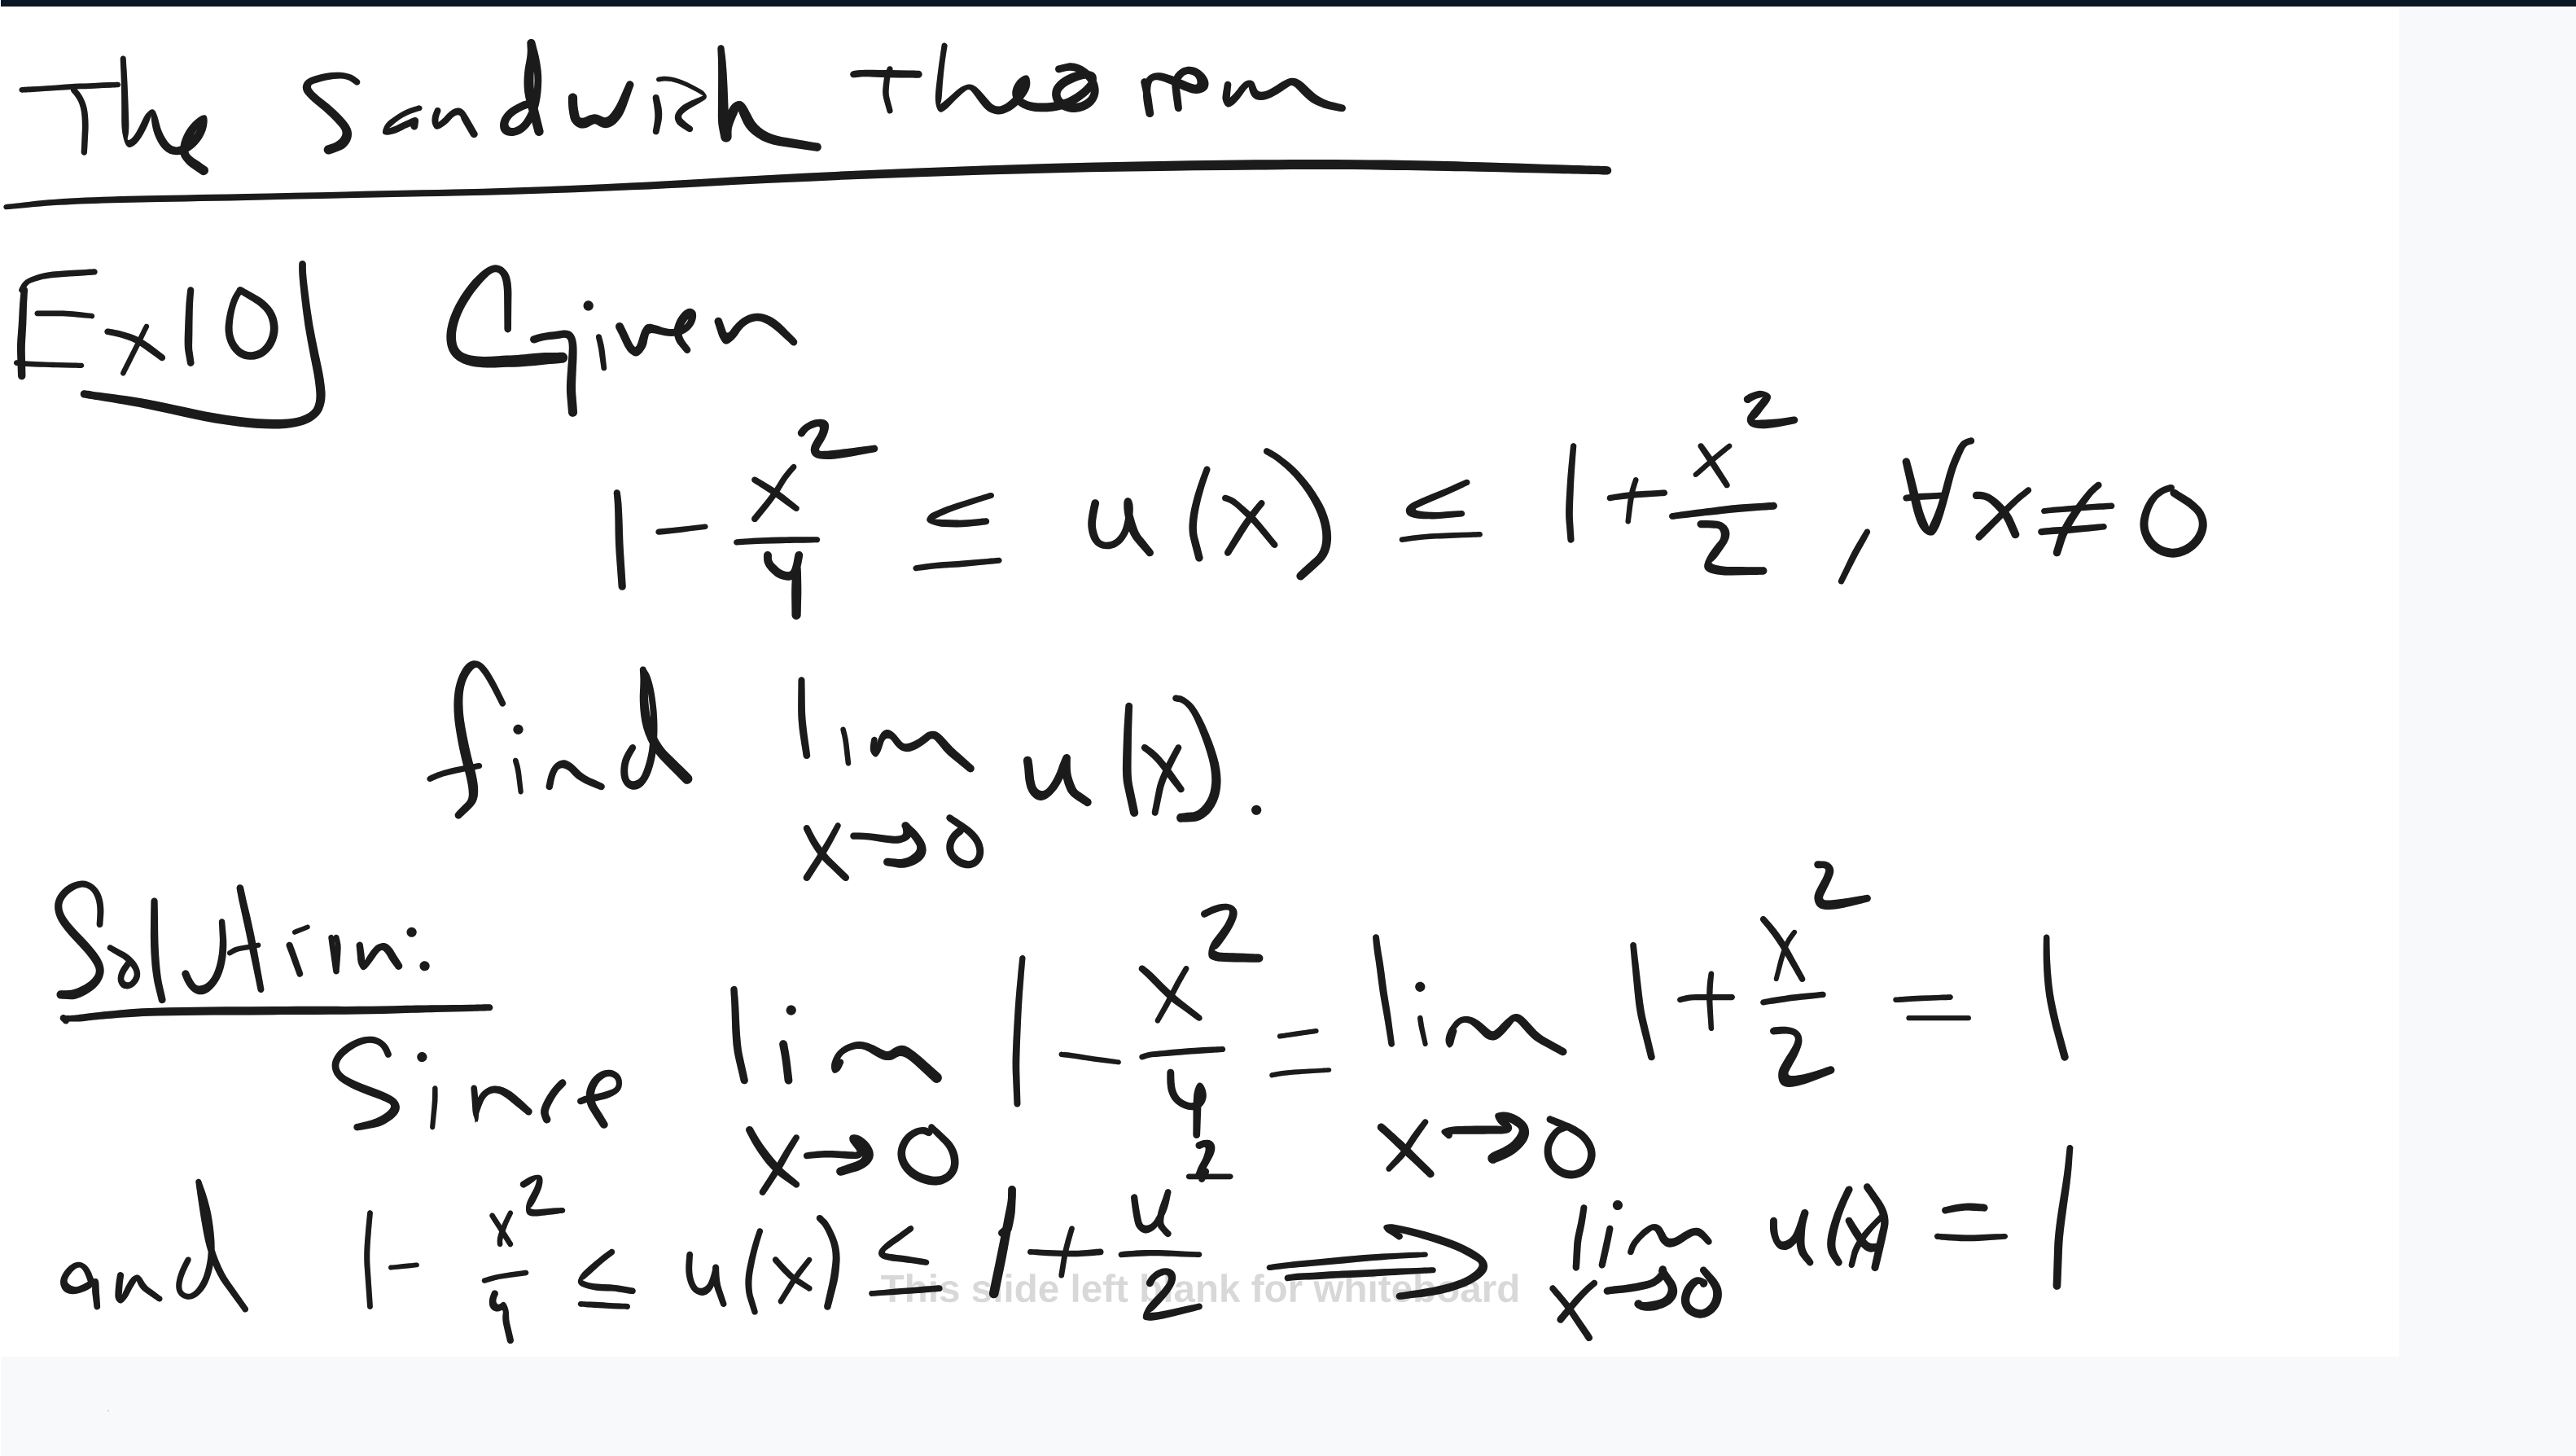 The Sandwich theorem
Ex10] Given
1 - x²/4 ≤ u(x) ≤ 1 + x²/2 , ∀x≠0
find lim x→0 u(x).
Solution:
Since lim x→0 1 - x²/4 = lim x→0 1 + x²/2 = 1
and 1 - x²/4 ≤ u(x) ≤ 1 + u²/2 ⟹ lim x→0 u(x) = 1
This slide left blank for whiteboard